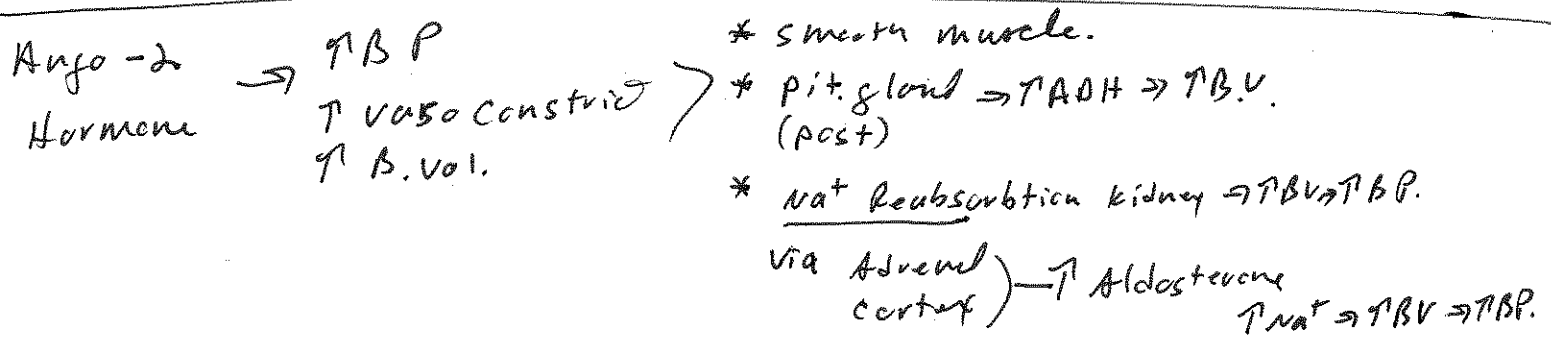 Ango-2 Hormone → ↑BP
↑ Vaso Constric
↑ B.Vol.
* smooth muscle.
* pit. gland ⇒ ↑ADH ⇒ ↑B.V.
(post)
* Na⁺ Reabsorbtion kidney ⇒ ↑BV ⇒ ↑BP.
via Adrenal cortex) — ↑ Aldosterone
↑Na⁺ ⇒ ↑BV ⇒ ↑BP.